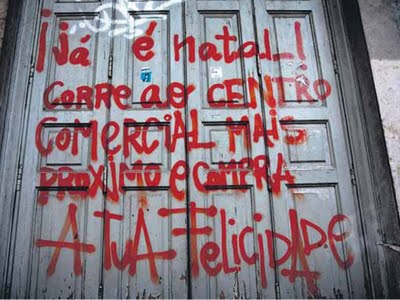 ¡já é natal..!
CORRE AO CENTRO
COMERCIAL MAIS
PROXIMO E COMPRA
A TUA FELICIDADE